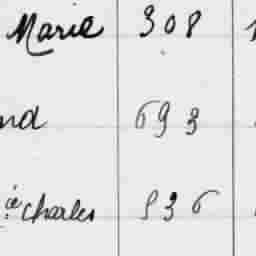 Marie 308
nd 693
Charles 836